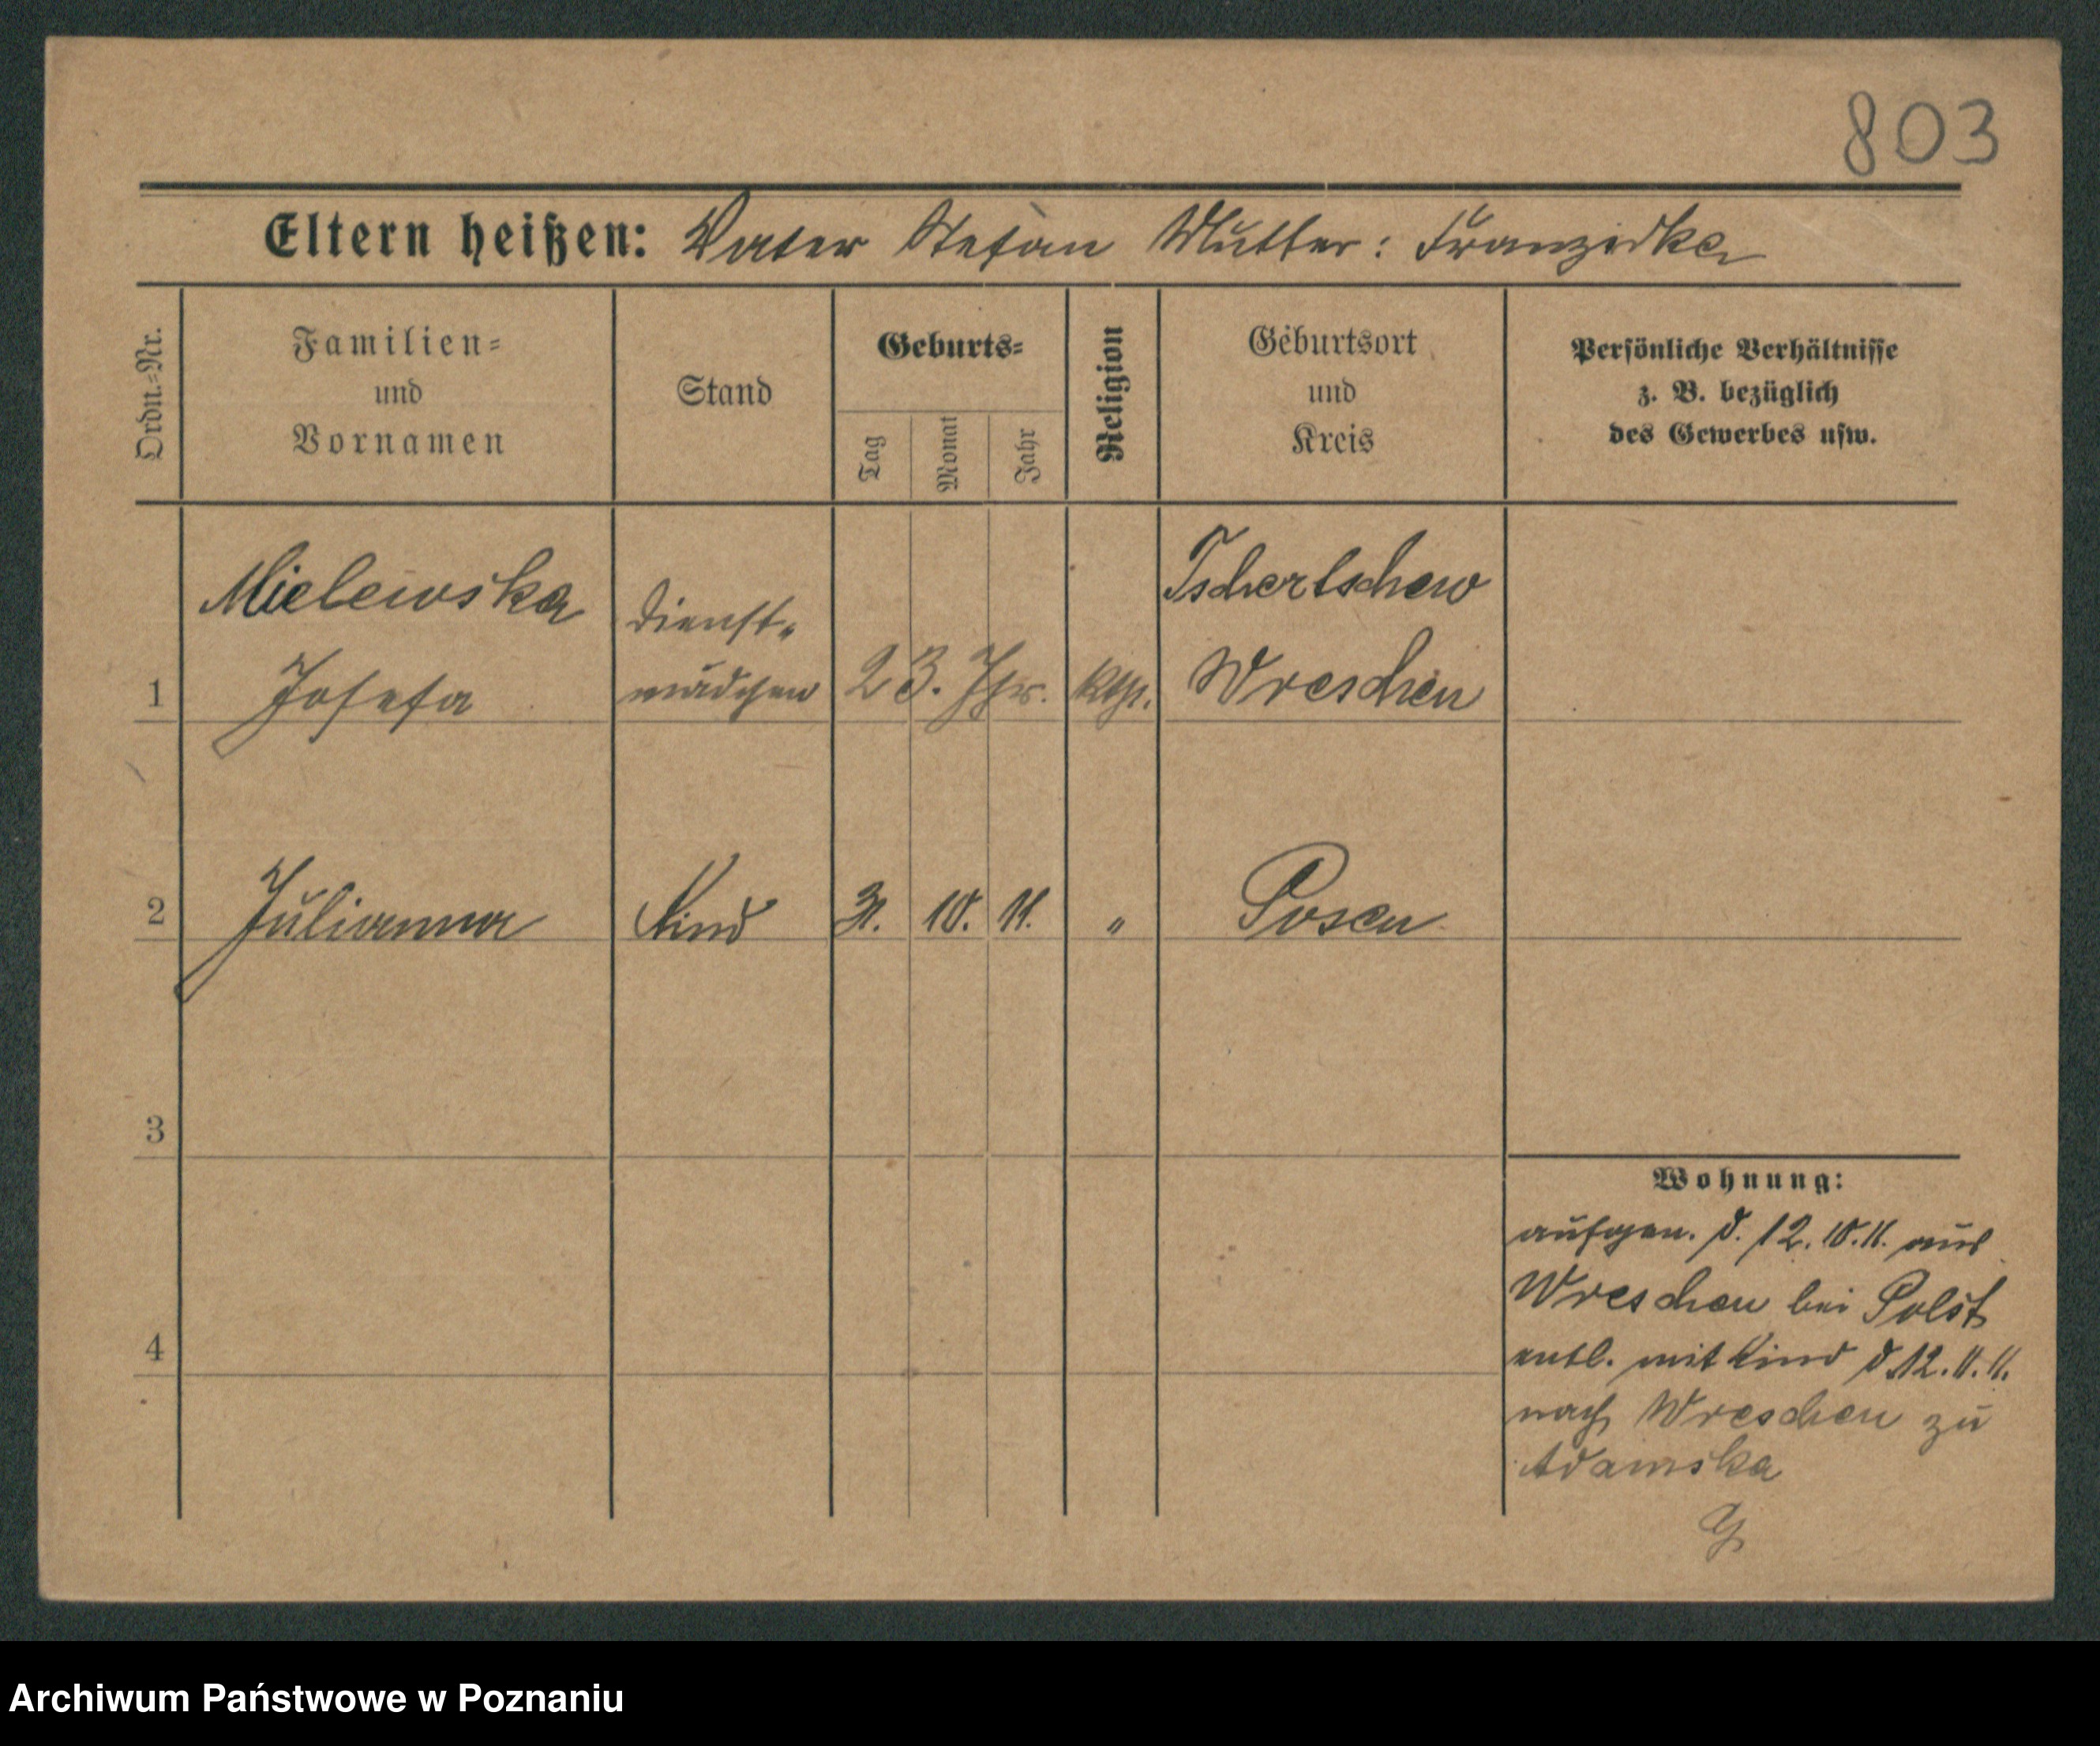 803
Eltern heißen: Vater Stefan Mutter: Franziska
Ordn.=Nr.
Familien=
und
Vornamen
Stand
Geburts=
Tag
Monat
Jahr
Religion
Geburtsort
und
Kreis
Persönliche Verhältnisse
z. B. bezüglich
des Gewerbes usw.
1
Mielewska
Josefa
Dienst-
mädchen
23. Jhr.
kth.
Wreschen
2
Julianna
Kind
31. 10. 11.
"
Posen
3
4
Wohnung:
aufgen. d. 12. 10. 11. aus
Wreschen bei Polst
entl. mit Kind d. 12. 11. 11.
nach Wreschen zu
Adamska
Archiwum Państwowe w Poznaniu